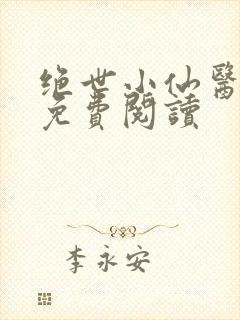 绝世小仙醫
免費閱讀
李永安